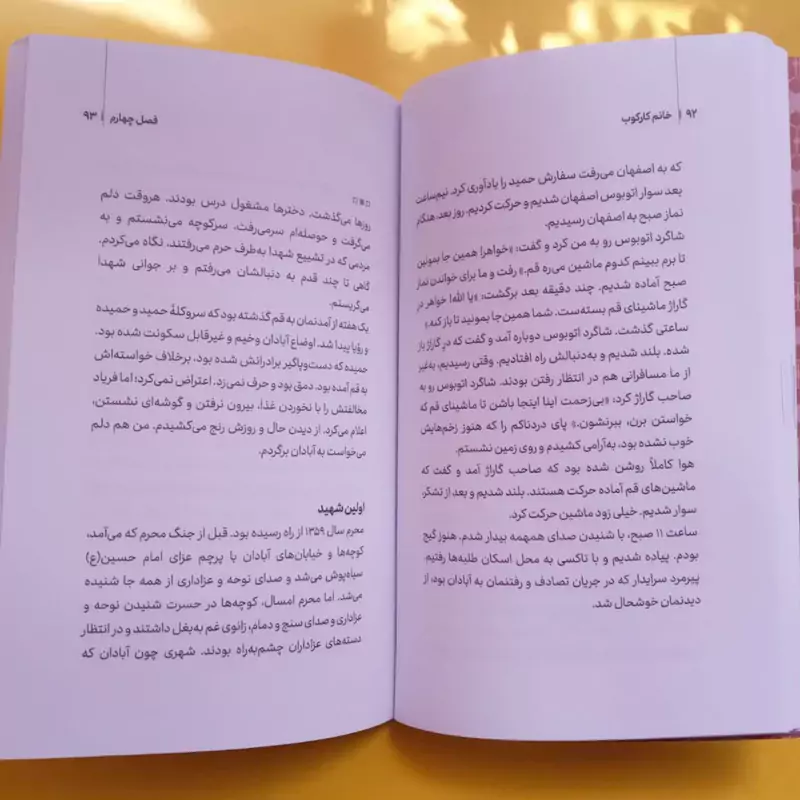 ۹۲ | خانم کارکوب
که به اصفهان می‌رفت سفارش حمید را یادآوری کرد. نیم‌ساعت
بعد سوار اتوبوس اصفهان شدیم و حرکت کردیم. روز بعد، هنگام
نماز صبح به اصفهان رسیدیم.
شاگرد اتوبوس رو به من کرد و گفت: «خواهر! همین جا بمونین
تا برم ببینم کدوم ماشین می‌ره قم.» رفت و ما برای خواندن نماز
صبح آماده شدیم. چند دقیقه بعد برگشت: «یا الله! خواهر در
گاراژ ماشینای قم بسته‌ست. شما همین‌جا بمونید تا باز کنه.»
ساعتی گذشت. شاگرد اتوبوس دوباره آمد و گفت که در گاراژ باز
شده. بلند شدیم و به‌دنبالش راه افتادیم. وقتی رسیدیم، به‌غیر
از ما مسافرانی هم در انتظار رفتن بودند. شاگرد اتوبوس رو به
صاحب گاراژ کرد: «بی‌زحمت اینا اینجا باشن تا ماشینای قم که
خواستن برن، ببرنشون.» پای دردناکم را که هنوز زخم‌هایش
خوب نشده بود، به‌آرامی کشیدم و روی زمین نشستم.
هوا کاملاً روشن شده بود که صاحب گاراژ آمد و گفت که
ماشین‌های قم آماده حرکت هستند. بلند شدیم و بعد از تشکر،
سوار شدیم. خیلی زود ماشین حرکت کرد.
ساعت ۱۱ صبح، با شنیدن صدای همهمه بیدار شدم. هنوز گیج
بودم. پیاده شدیم و با تاکسی به محل اسکان طلبه‌ها رفتیم.
پیرمرد سرایدار که در جریان تصادف و رفتنمان به آبادان بود، از
دیدنمان خوشحال شد.
فصل چهارم | ۹۳
روزها می‌گذشت. دخترها مشغول درس بودند. هروقت دلم
می‌گرفت و حوصله‌ام سرمی‌رفت، سرکوچه می‌نشستم و به
مردمی که در تشییع شهدا به‌طرف حرم می‌رفتند، نگاه می‌کردم.
گاهی تا چند قدم به دنبالشان می‌رفتم و بر جوانی شهدا
می‌گریستم.
یک هفته از آمدنمان به قم گذشته بود که سروکلهٔ حمید و حمیده
و رؤیا پیدا شد. اوضاع آبادان وخیم و غیرقابل سکونت شده بود.
حمیده که دست‌وپاگیر برادرانش شده بود، برخلاف خواسته‌اش
به قم آمده بود. دمق بود و حرف نمی‌زد. اعتراض نمی‌کرد؛ اما فریاد
مخالفتش را با نخوردن غذا، بیرون نرفتن و گوشه‌ای نشستن،
اعلام می‌کرد. از دیدن حال و روزش رنج می‌کشیدم. من هم دلم
می‌خواست به آبادان برگردم.
اولین شهید
محرم سال ۱۳۵۹ از راه رسیده بود. قبل از جنگ محرم که می‌آمد،
کوچه‌ها و خیابان‌های آبادان با پرچم عزای امام حسین(ع)
سیاه‌پوش می‌شد و صدای نوحه و عزاداری از همه جا شنیده
می‌شد. اما محرم امسال، کوچه‌ها در حسرت شنیدن نوحه و
عزاداری و صدای سنج و دمام، زانوی غم به‌بغل داشتند و در انتظار
دسته‌های عزاداران چشم‌به‌راه بودند. شهری چون آبادان که